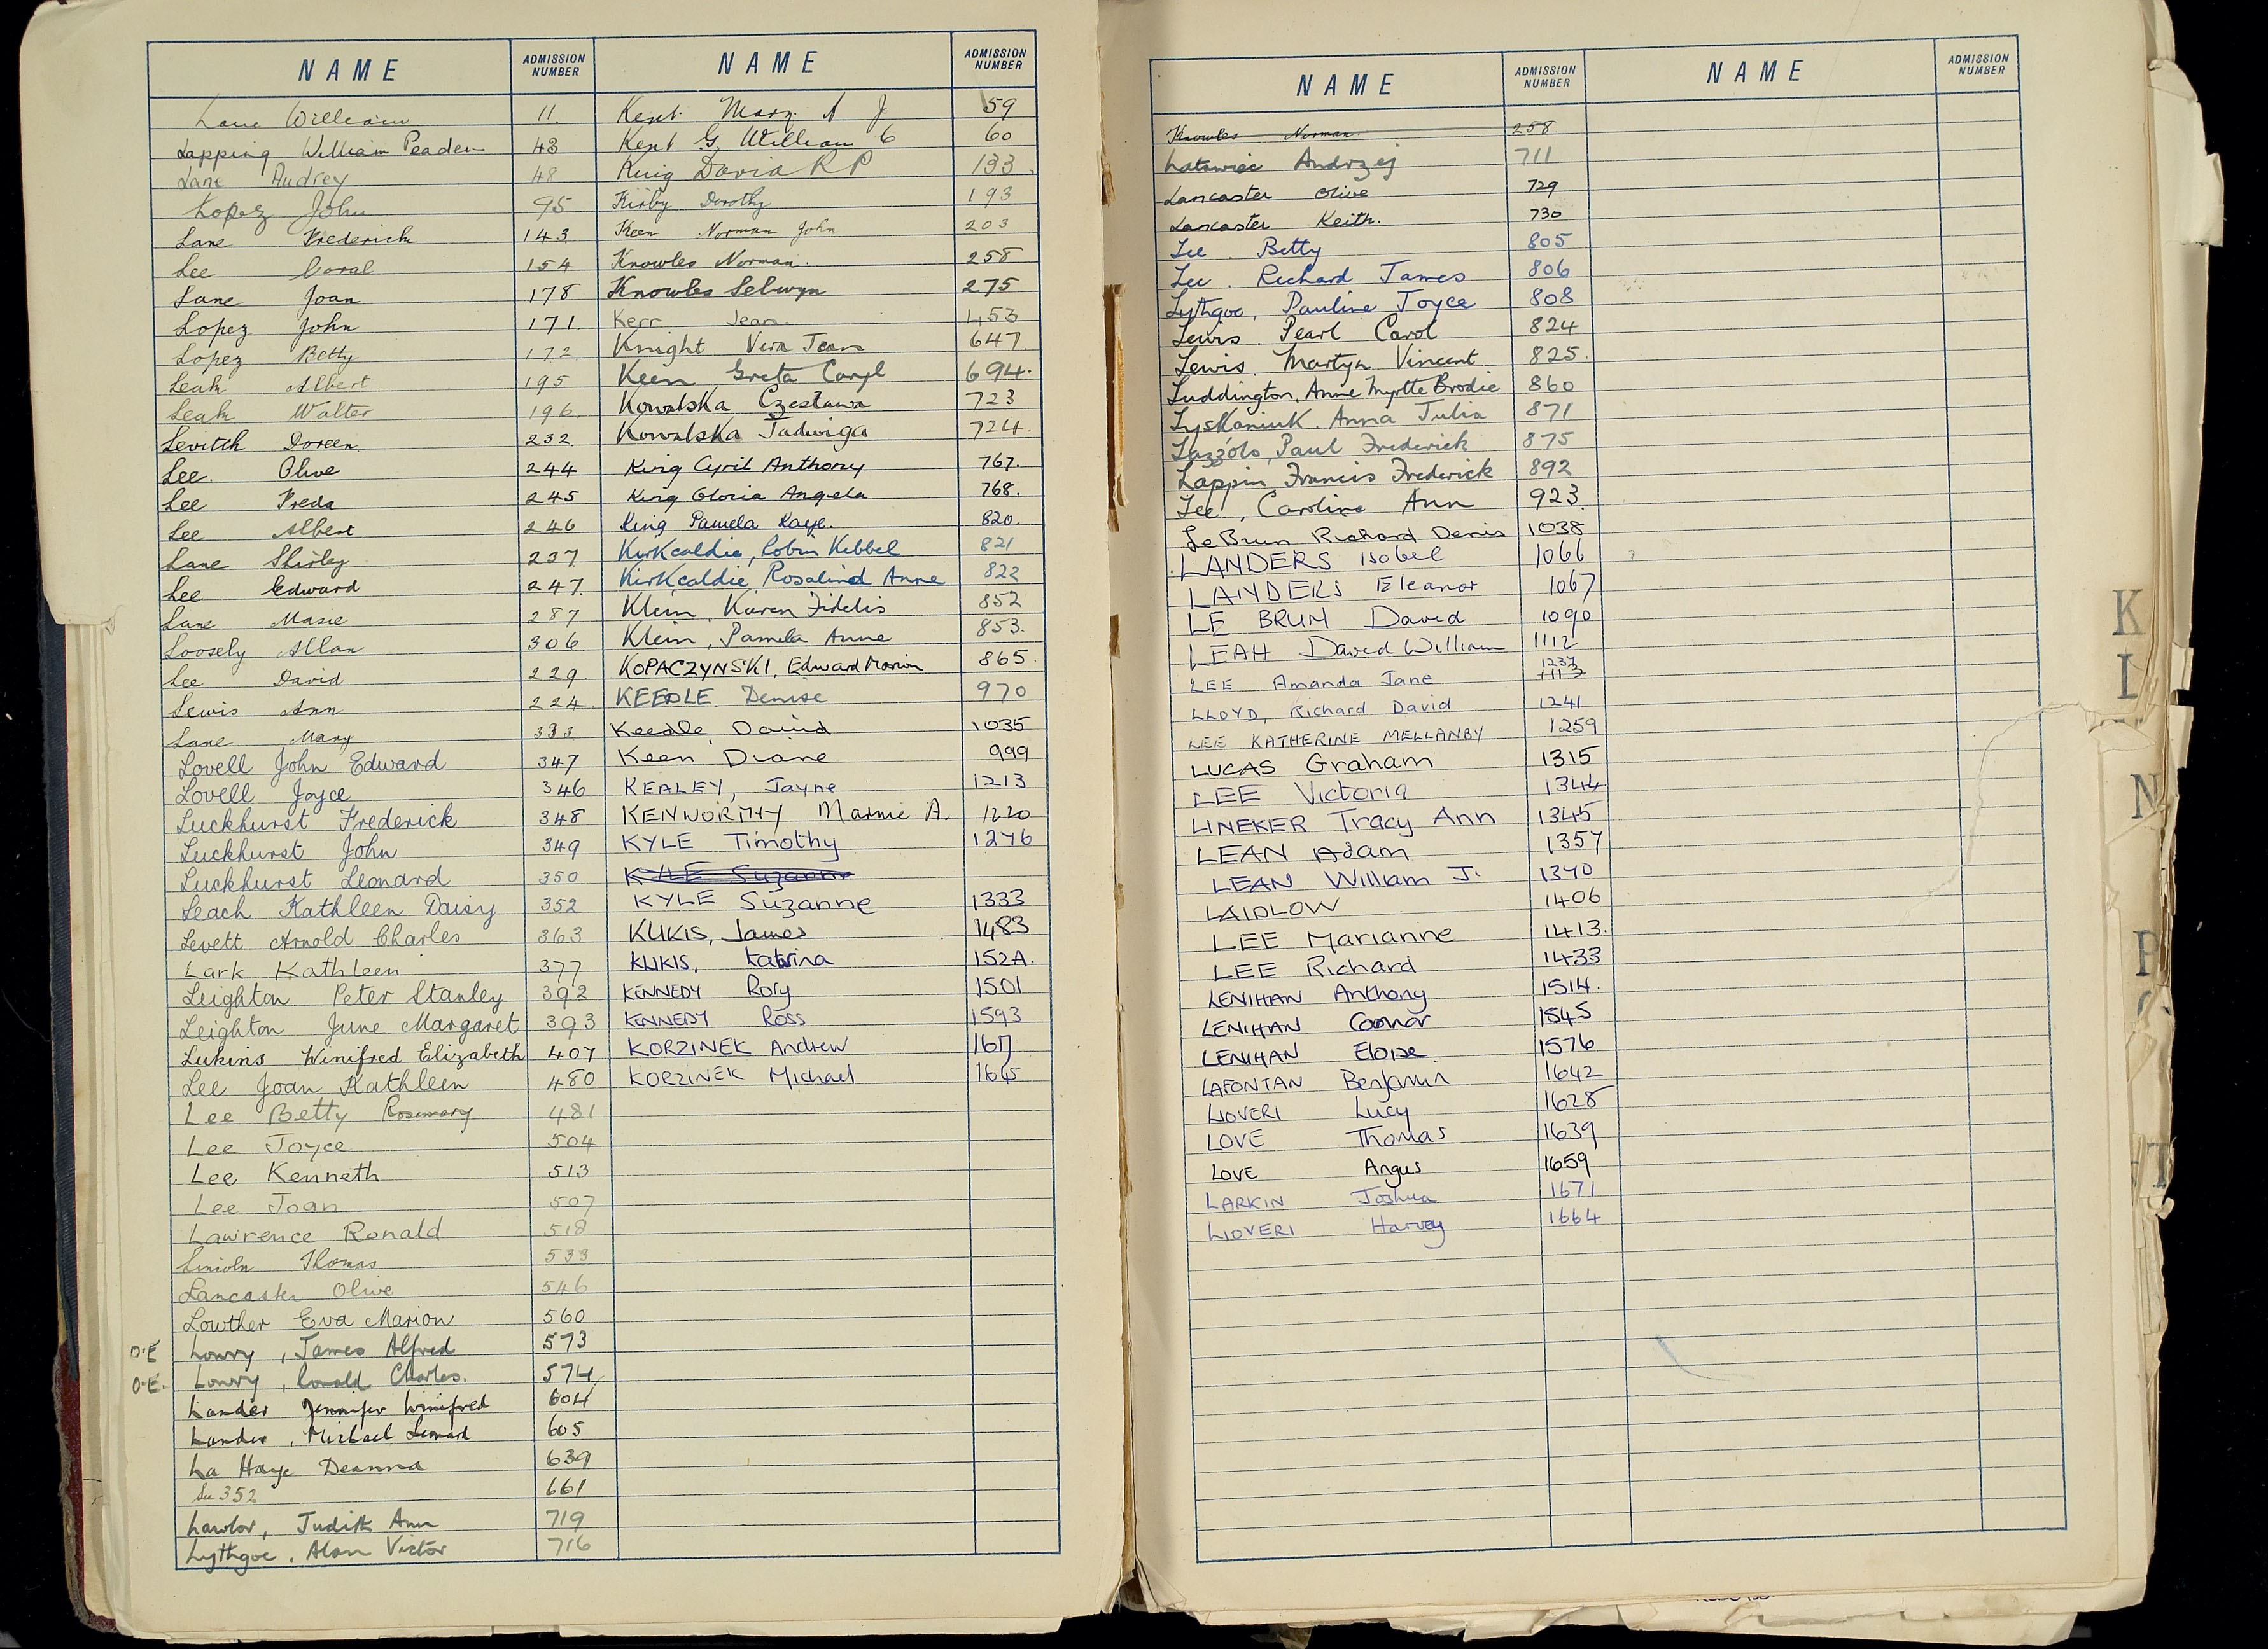 NAME ADMISSION NUMBER
Lane William 11.
Lapping William Peaden 43
Lane Audrey 48
Lopez John 95
Lane Frederick 143
Lee Coral 154
Lane Joan 178
Lopez John 171
Lopez Betty 172
Leah Albert 195
Leah Walter 196
Levitch Doreen 232
Lee Olive 244
Lee Freda 245
Lee Albert 246
Lane Shirley 237
Lee Edward 247
Lane Masie 287
Loosely Allan 306
Lee David 229
Lewis Ann 224
Lane Mary 333
Lovell John Edward 347
Lovell Joyce 346
Luckhurst Frederick 348
Luckhurst John 349
Luckhurst Leonard 350
Leach Kathleen Daisy 352
Levett Arnold Charles 363
Lark Kathleen 377
Leighton Peter Stanley 392
Leighton June Margaret 393
Lukins Winifred Elizabeth 407
Lee Joan Kathleen 480
Lee Betty Rosemary 481
Lee Joyce 504
Lee Kenneth 513
Lee Joan 507
Lawrence Ronald 518
Lincoln Thomas 533
Lancaster Olive 546
Lowther Eva Marion 560
O.E Lowry, James Alfred 573
O.E. Lowry, Ronald Charles. 574
Lander Jennifer Winifred 604
Lander, Michael Leonard 605
La Haye Deanna 639
See 352 661
Lawlor, Judith Ann 719
Lythgoe, Alan Victor 716
NAME ADMISSION NUMBER
Kent Mary A J 59
Kent G. William G 60
King David R P 133
Kirby Dorothy 193
Keen Norman John 203
Knowles Norman. 258
Knowles Selwyn 275
Kerr Jean 453
Knight Vera Jean 647
Keen Greta Caryl 694.
Kowalska Czeslawa 723
Kowalska Jadwiga 724.
King Cyril Anthony 767.
King Gloria Angela 768.
King Pamela Kaye. 820.
Kirkcaldie, Robin Kebbel 821
Kirkcaldie Rosalind Anne 822
Klein, Karen Fidelis 852
Klein, Pamela Anne 853.
KOPACZYNSKI, Edward Marion 865.
KEEDLE Denise 970
Keedle David 1035
Keen Diane 999
KEALEY, Jayne 1213
KENWORTHY Marnie A. 1220
KYLE Timothy 1276
KYLE Suzanne
KYLE Suzanne 1333
KUKIS, James 1483
KUKIS, Katrina 152A.
KENNEDY Rory 1501
KENNEDY Ross 1593
KORZINEK Andrew 1617
KORZINEK Michael 1645
NAME ADMISSION NUMBER
Knowles Norman. 258
Latawiec Andrzej 711
Lancaster Olive 729
Lancaster Keith. 730
Lee. Betty 805
Lee. Richard James 806
Lythgoe, Pauline Joyce 808
Lewis. Pearl Carol 824
Lewis. Martyn Vincent 825.
Luddington, Anne Myrtle Brodie 860
Lyskaniuk. Anna Julia 871
Lazzólo, Paul Frederick 875
Lappin Francis Frederick 892
Lee, Caroline Ann 923.
Le Brun Richard Denis 1038
LANDERS Isobel 1066
LANDERS Eleanor 1067
LE BRUN David 1090
LEAH David William 1112
LEE Amanda Jane 1237 1113
LLOYD, Richard David 1241
LEE KATHERINE MELLANBY 1259
LUCAS Graham 1315
LEE Victoria 1344
LINEKER Tracy Ann 1345
LEAN Adam 1357
LEAN William J. 1370
LAIDLOW 1406
LEE Marianne 1413.
LEE Richard 1433
LENIHAN Anthony 1514.
LENIHAN Connor 1545
LENIHAN Eloise 1576
LAFONTAN Benjamin 1642
LIOVERI Lucy 1628
LOVE Thomas 1639
LOVE Angus 1659
LARKIN Joshua 1671
LIOVERI Harvey 1664
NAME ADMISSION NUMBER
K
L
N
P
T